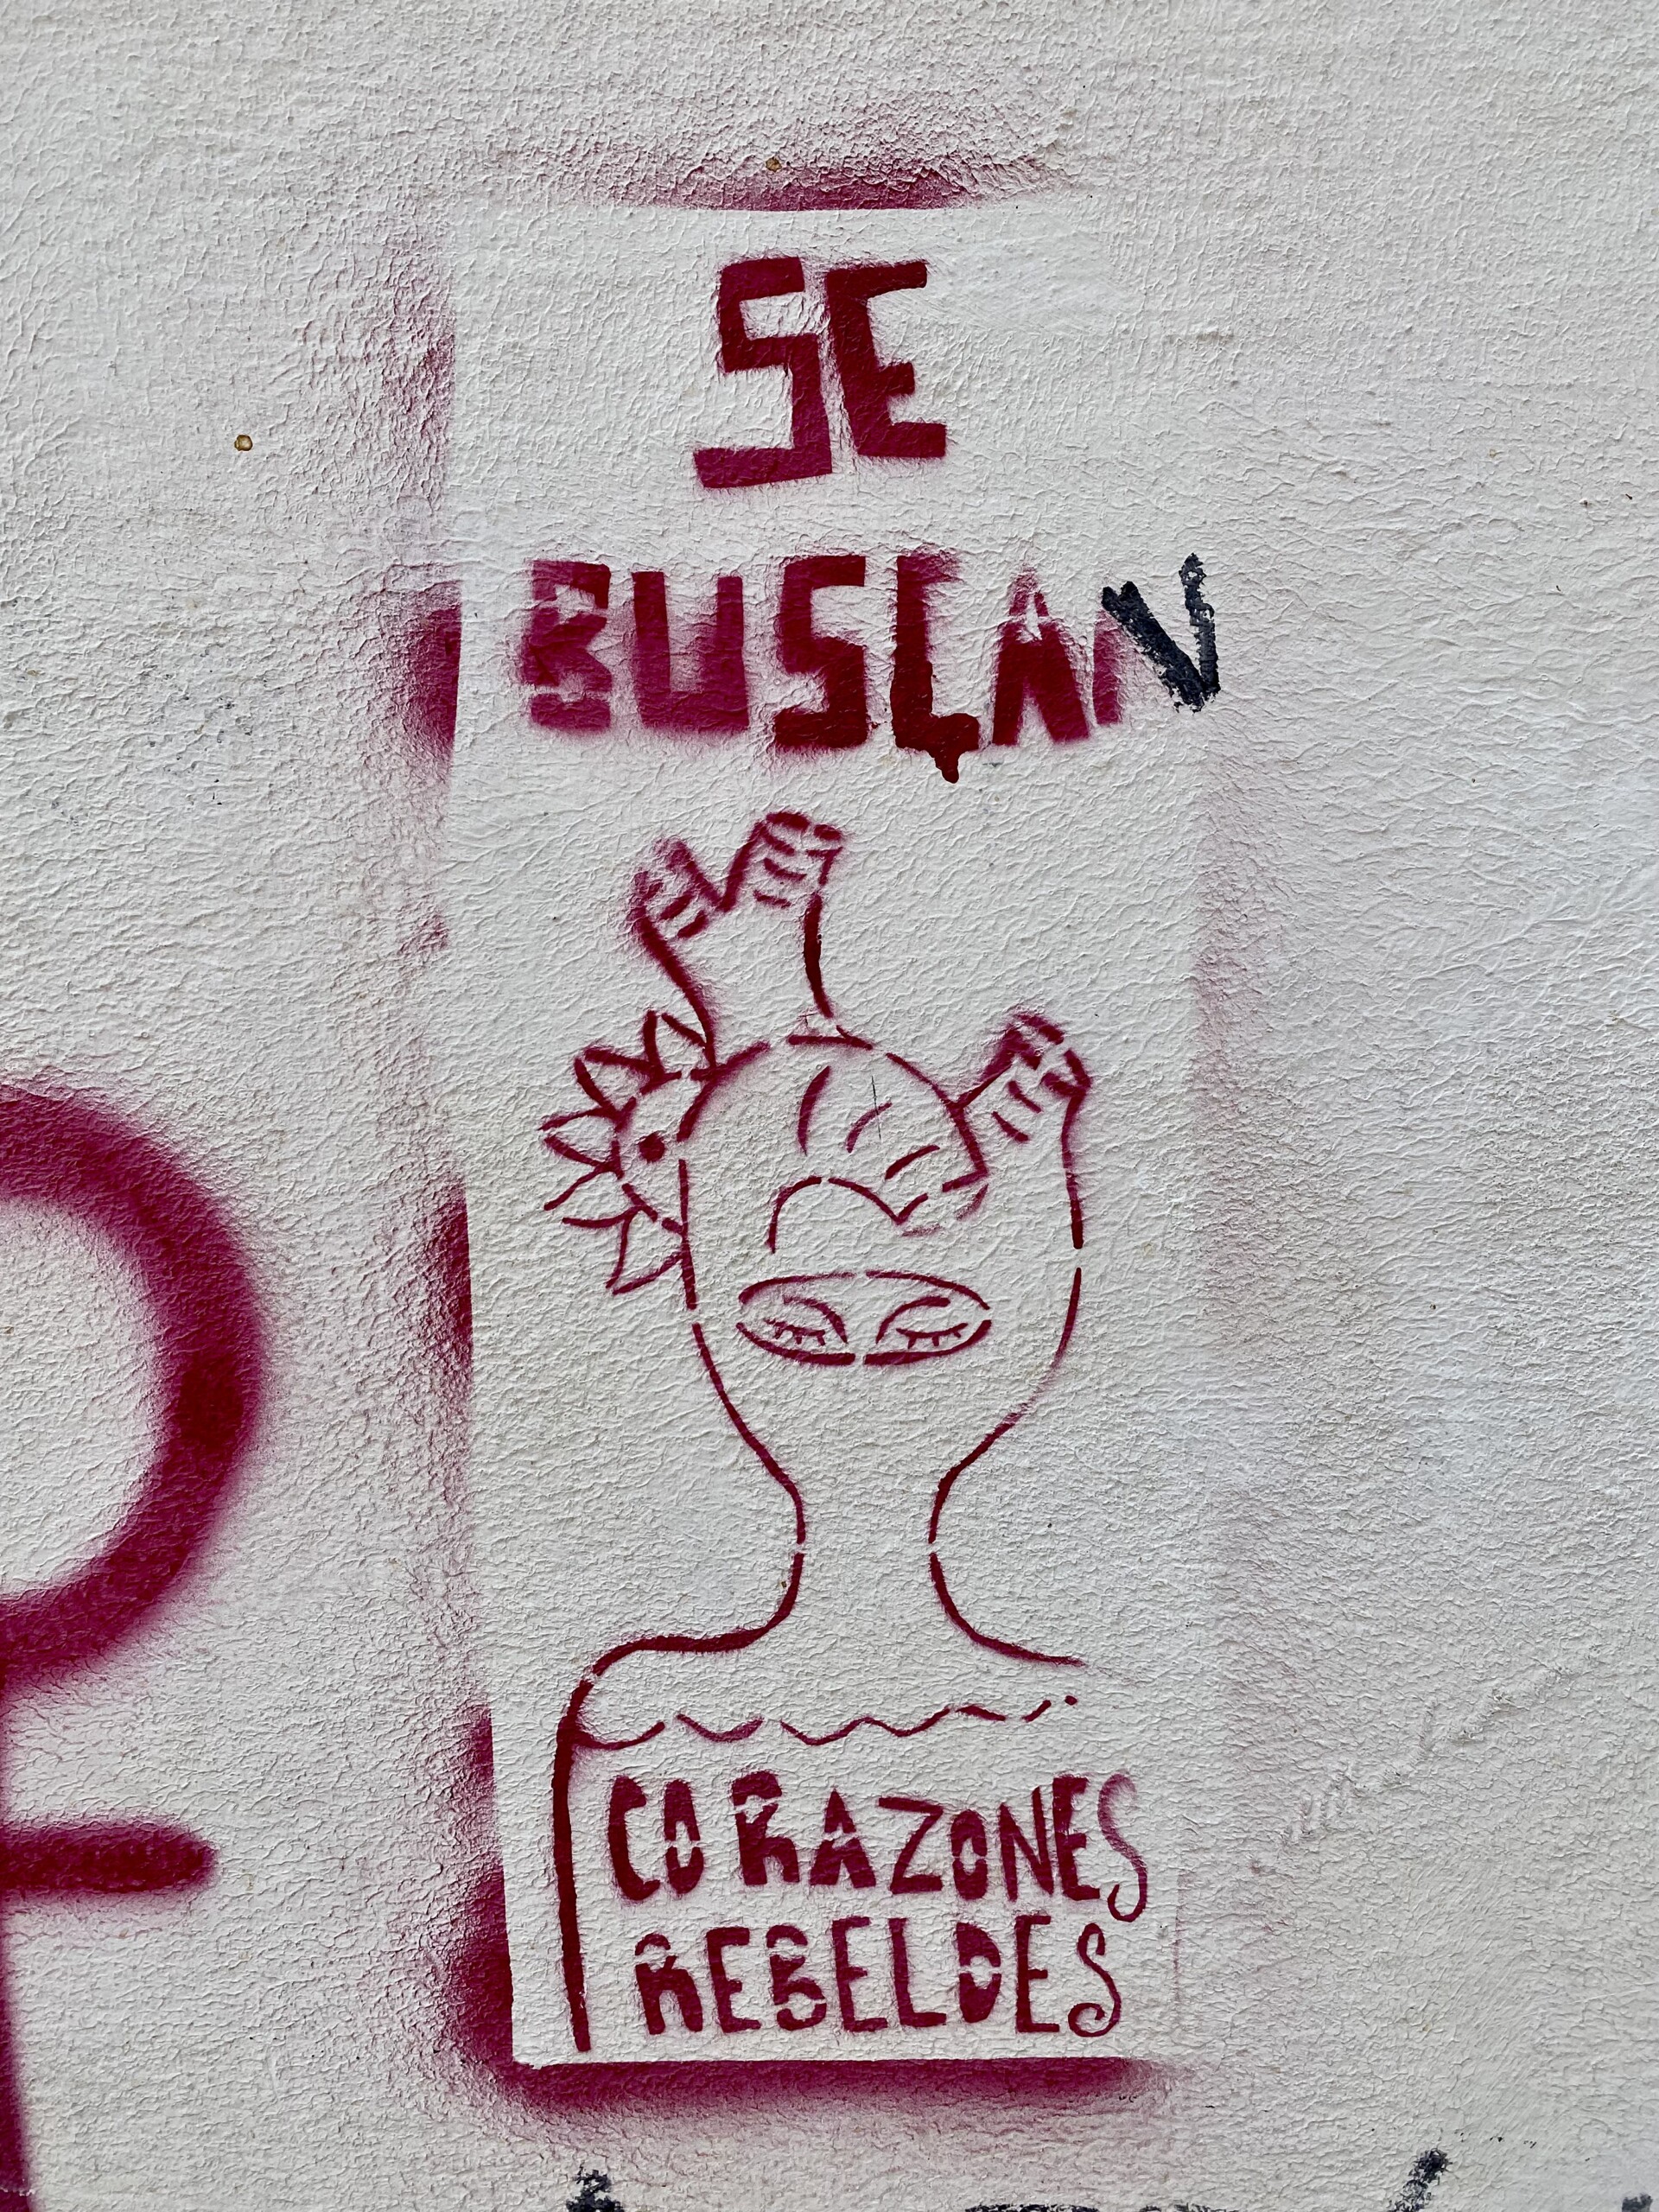 SE
BUSCAN
CORAZONES
REBELDES